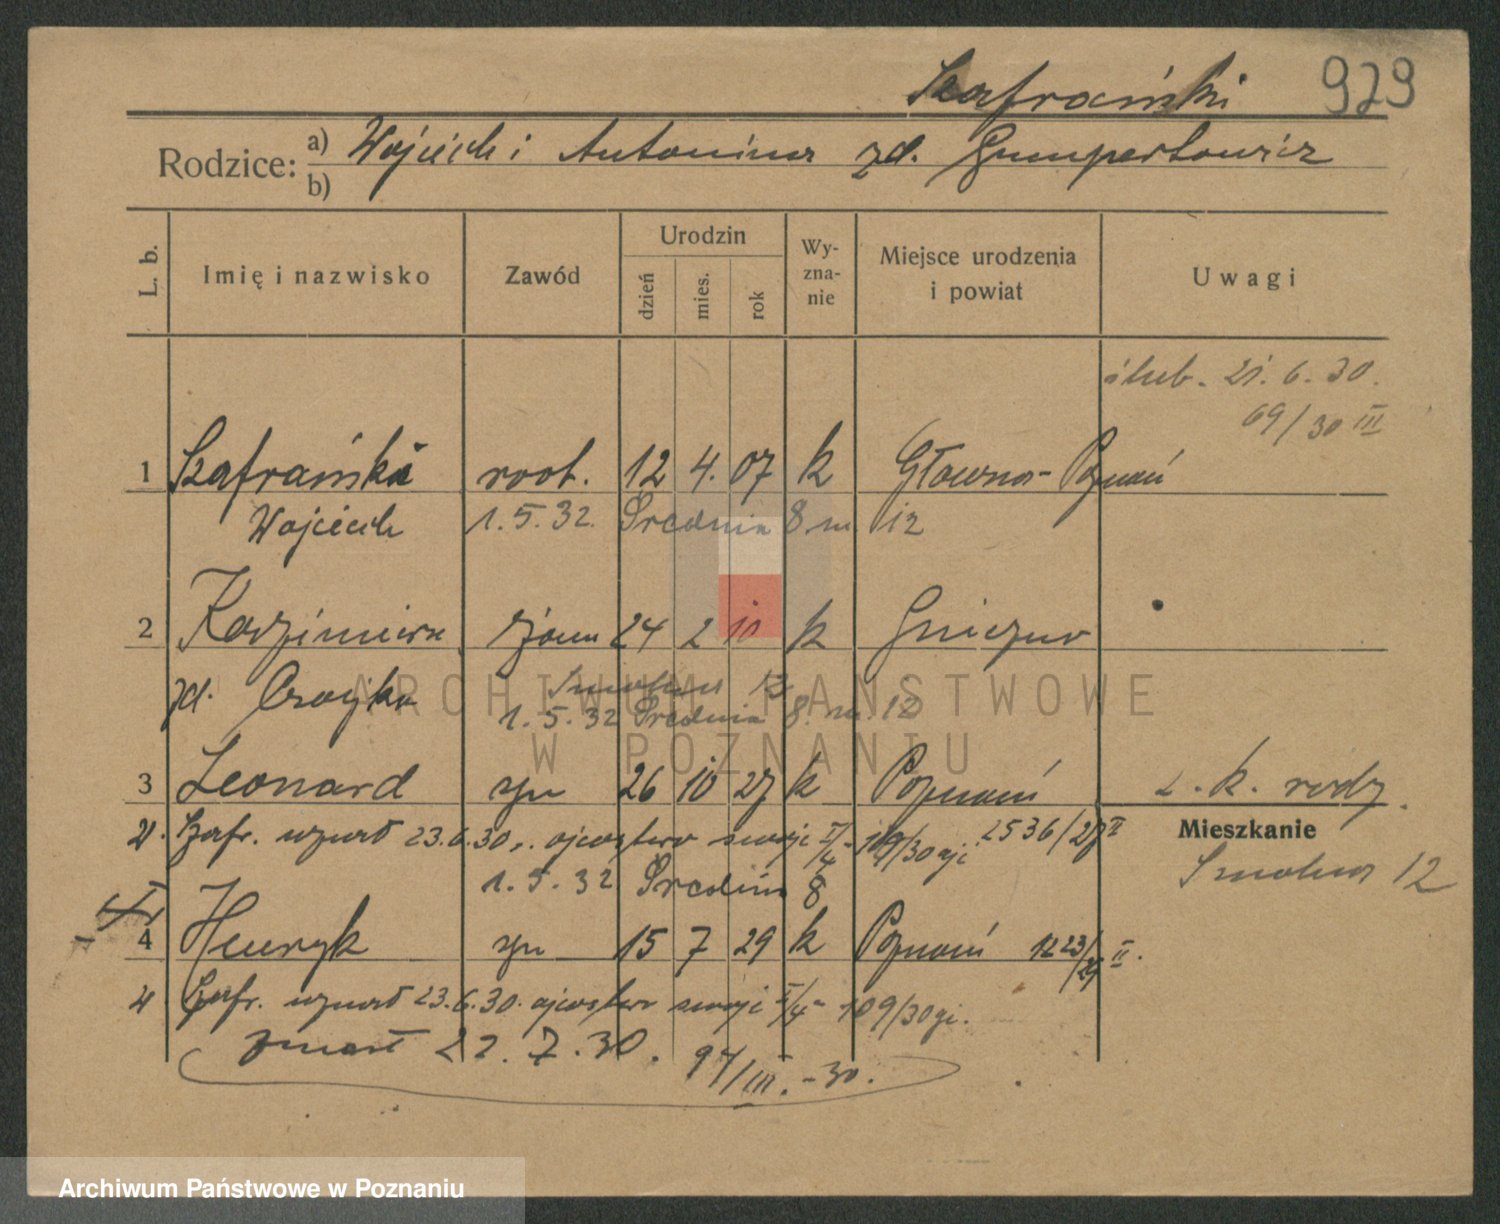 Szafrański 929
Rodzice: a) Wojciech i Antonina zd. Gumpertowicz
b)
L. b. Imię i nazwisko Zawód Urodzin dzień mies. rok Wy-zna-nie Miejsce urodzenia i powiat Uwagi
ślub. 21. 6. 30.
69/30 III
1 Szafrański robt. 12 4. 07 k Główna - Poznań
Wojciech 1. 5. 32. Średnia 8 m 12
2 Kazimiera żona 24 2 10 k Gniezno
zd. Czajka
1. 5. 32 Średnia 8. m. 12
3 Leonard syn 26 10 27 k Poznań
Szafr. uznał 23. 6. 30. ojcostwo 2536/27 II
Mieszkanie
1. 5. 32 Średnia 8
Smolna 12
4 Henryk syn 15 7 29 k Poznań 1223/29 II.
Szafr. uznał 23. 6. 30. ojcostwo 109/30
zmarł 22. 7. 30. 97/III. - 30.
ARCHIWUM PAŃSTWOWE
W POZNANIU
Archiwum Państwowe w Poznaniu